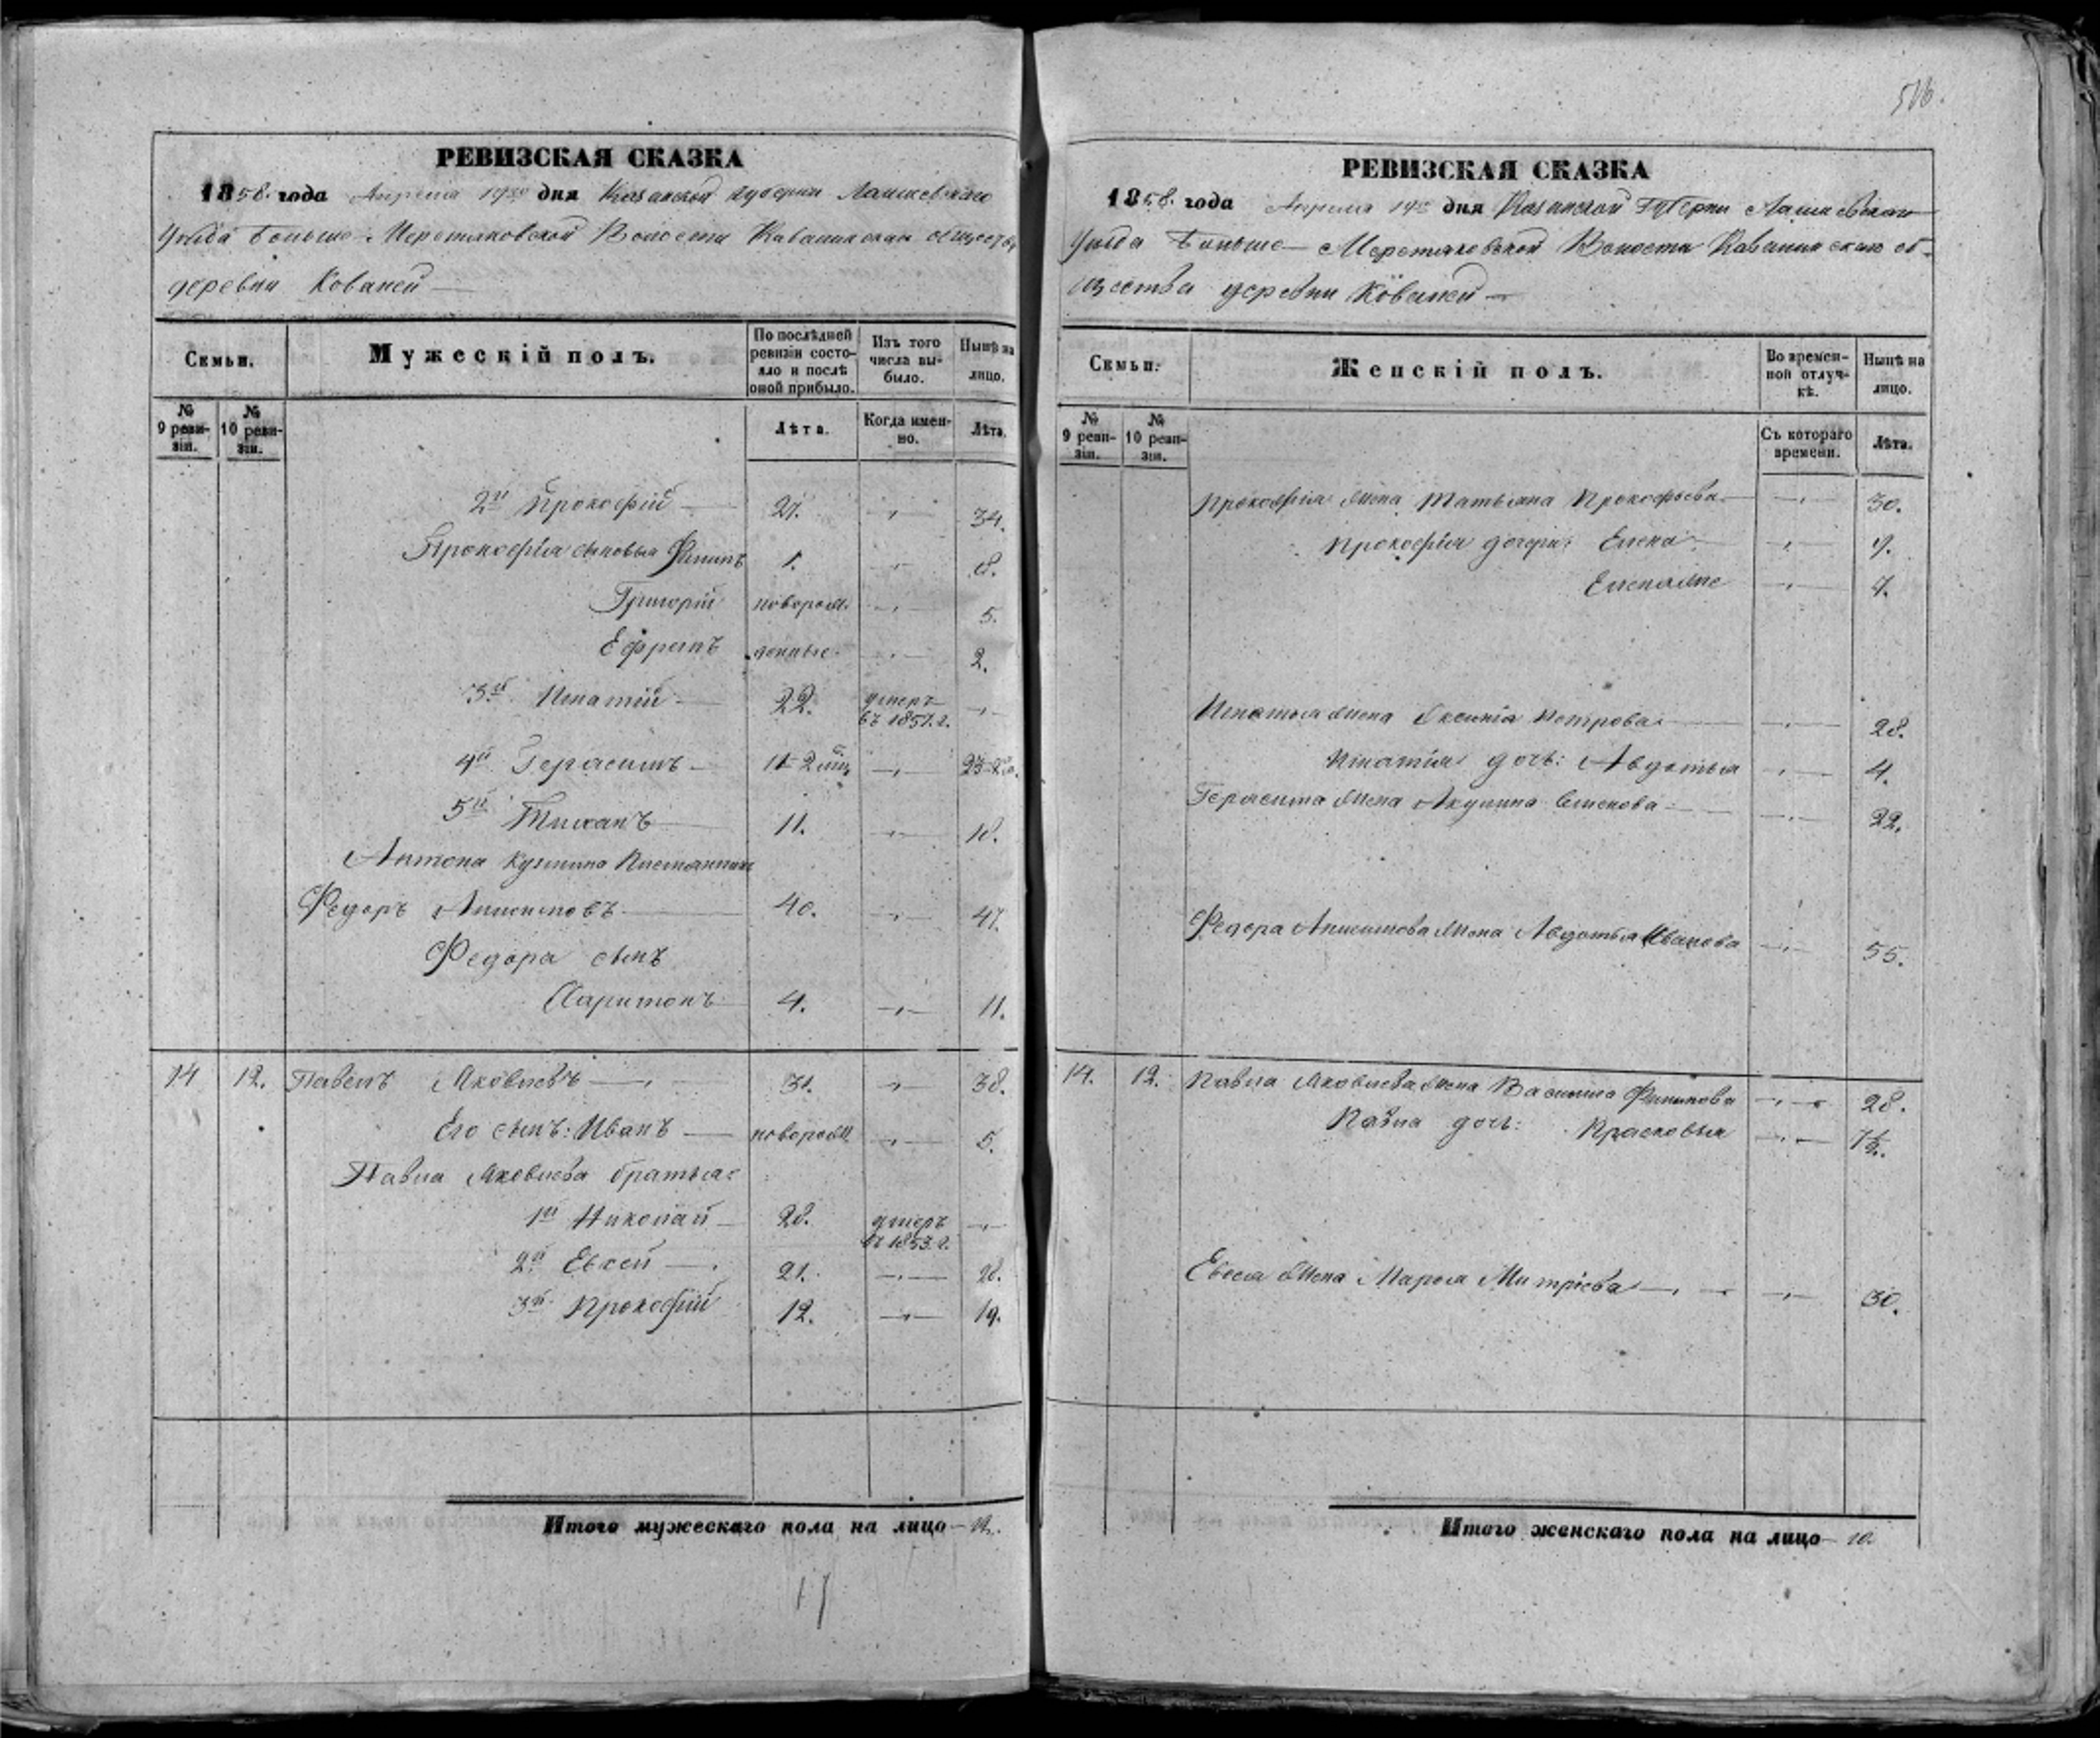 516.
РЕВИЗСКАЯ СКАЗКА
1858. года Апреля 19го дня Казанской Губернии Лаишевскаго
Уезда Больше-Меретяковской Волости Ковалинскаго общества
деревни Ковалей
Семьи.
Мужескій полъ.
По послѣдней ревизіи состояло и послѣ оной прибыло.
Изъ того числа выбыло.
Нынѣ на лицо.
№ 9 ревизіи.
№ 10 ревизіи.
Лѣта.
Когда именно.
Лѣта.
2й Прокофій 27. 34.
Прокофія сыновья Филипъ 1. 8.
Григорій новорож. 5.
Ефремъ 2.
3й Игнатій 22. умеръ въ 1857. г.
4й Герасимъ
5й Тиханъ 11. 18.
Антона Кузмина
Федоръ Анисимовъ 40. 47.
Федора сынъ
Харитонъ 4. 11.
14 12. Павелъ Яковлевъ 31. 38.
Его сынъ: Иванъ новорож. 5.
Павла Яковлева братья:
1й Николай 28. умеръ въ 1853. г.
2й Евсей 21. 28.
3й Прокофій 12. 19.
Итого мужескаго пола на лицо
17
РЕВИЗСКАЯ СКАЗКА
1858. года Апреля 19го дня Казанской Губерни Лашевскаго
Уезда Больше-Меретяковской Волости Ковалинскаго об-
щества деревни Ковалей
Семьи.
Женскій полъ.
Во временной отлучкѣ.
Нынѣ на лицо.
№ 9 ревизіи.
№ 10 ревизіи.
Съ котораго времени.
Лѣта.
Прокофія жена Татьяна Прокофьева 30.
Прокофія дочери: Елена 9.
Елена же 7.
Игнатья жена Аксинія Петрова 28.
Игнатія дочь: Авдотья 4.
Герасима жена Акулина Семенова 22.
Федора Анисимова жена Авдотья Иванова 55.
14. 12. Павла Яковлева жена Василиса Филипова 28.
Павла дочь: Прасковья
Евсея жена Марья Митріева 30.
Итого женскаго пола на лицо 10.